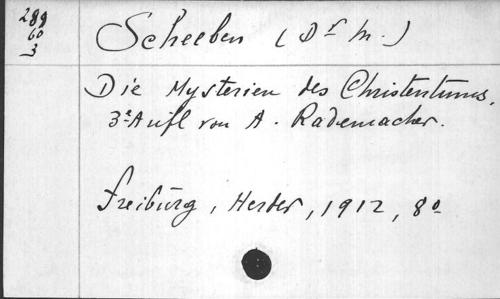 289
60
3
Scheeben (Dr M.)
Die Mysterien des Christentums.
3e Aufl von A. Rademacher.
Freiburg, Herder, 1912, 8o